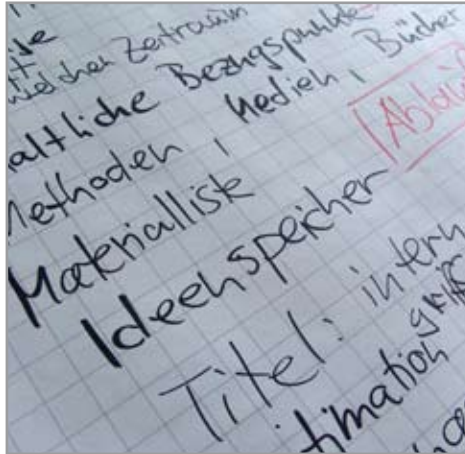 welchen Zeitraum
haltliche Bezugspunkte
Methoden, Medien, Bücher
Materialliste
Ideenspeicher
Titel: intern
griff
timation